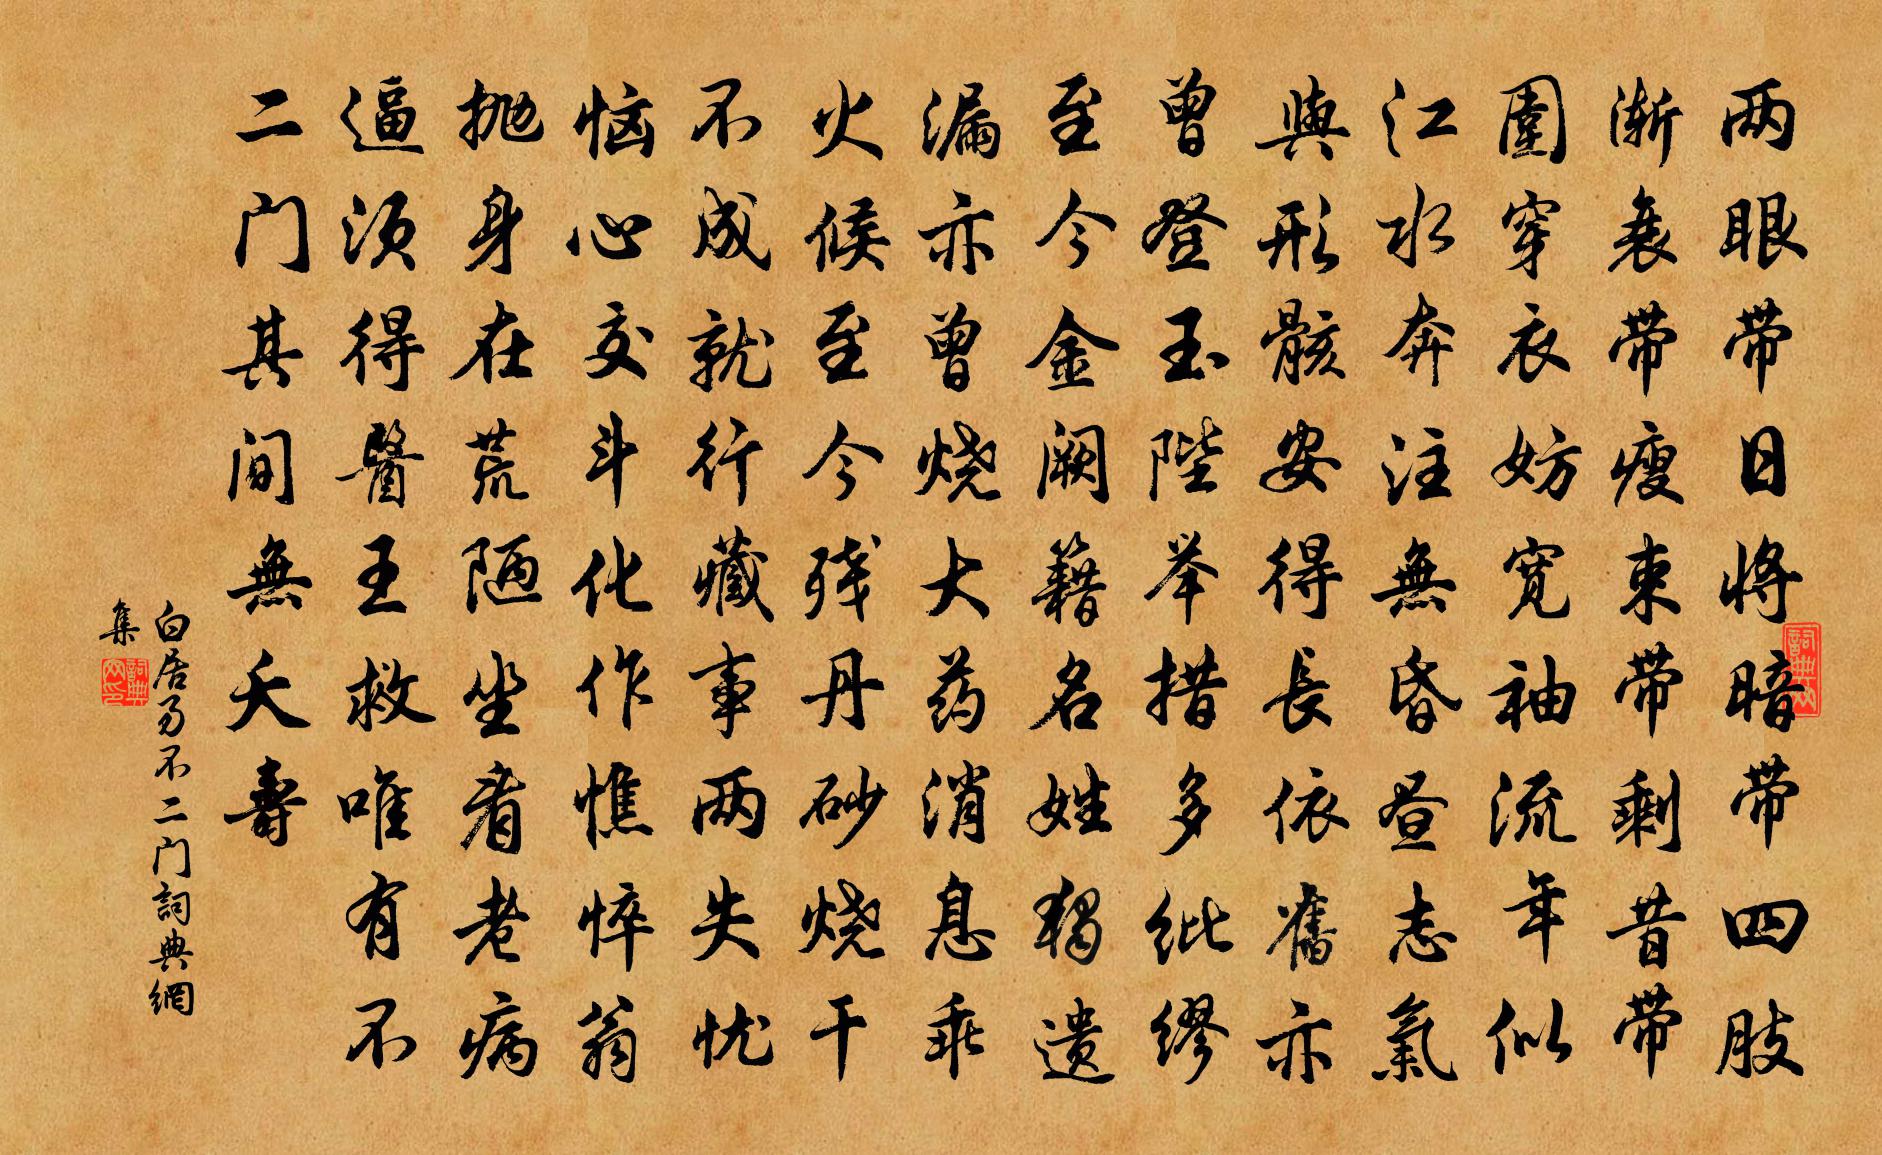 两眼带日将暗带四肢
渐衰带瘦束带剩昔带
围穿衣妨宽袖流年似
江水奔注無昏昼志氣
與形骸安得長依舊亦
曾登玉陛举措多纰缪
至今金阙籍名姓独遗
漏亦曾烧大药消息乖
火候至今残丹砂烧干
不成就行藏事两失忧
恼心交斗化作憔悴翁
抛身在荒陋坐看老病
逼须得醫王救唯有不
二门其间無夭壽
白居易不二门詞典網
集
詞典网
詞典网印